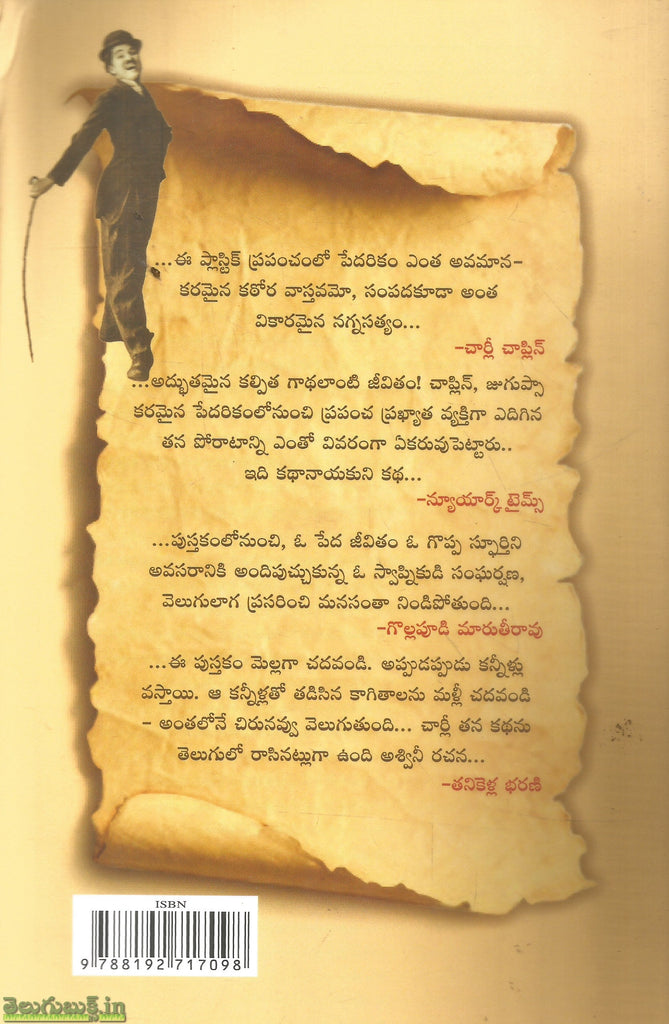 ...ఈ ప్లాస్టిక్ ప్రపంచంలో పేదరికం ఎంత అవమాన-
కరమైన కఠోర వాస్తవమో, సంపదకూడా అంత
వికారమైన నగ్నసత్యం...
-చార్లీ చాప్లిన్
...అద్భుతమైన కల్పిత గాథలాంటి జీవితం! చాప్లిన్, జుగుప్సా
కరమైన పేదరికంలోనుంచి ప్రపంచ ప్రఖ్యాత వ్యక్తిగా ఎదిగిన
తన పోరాటాన్ని ఎంతో వివరంగా ఏకరువుపెట్టారు..
ఇది కథానాయకుని కథ...
-న్యూయార్క్ టైమ్స్
...పుస్తకంలోనుంచి, ఓ పేద జీవితం ఓ గొప్ప స్ఫూర్తిని
అవసరానికి అందిపుచ్చుకున్న ఓ స్వాప్నికుడి సంఘర్షణ,
వెలుగులాగ ప్రసరించి మనసంతా నిండిపోతుంది...
-గొల్లపూడి మారుతీరావు
...ఈ పుస్తకం మెల్లగా చదవండి. అప్పుడప్పుడు కన్నీళ్లు
వస్తాయి. ఆ కన్నీళ్లతో తడిసిన కాగితాలను మళ్లీ చదవండి
- అంతలోనే చిరునవ్వు వెలుగుతుంది... చార్లీ తన కథను
తెలుగులో రాసినట్లుగా ఉంది అశ్విని రచన...
-తనికెళ్ల భరణి
ISBN
9 788192 717098
తెలుగుబుక్స్.in